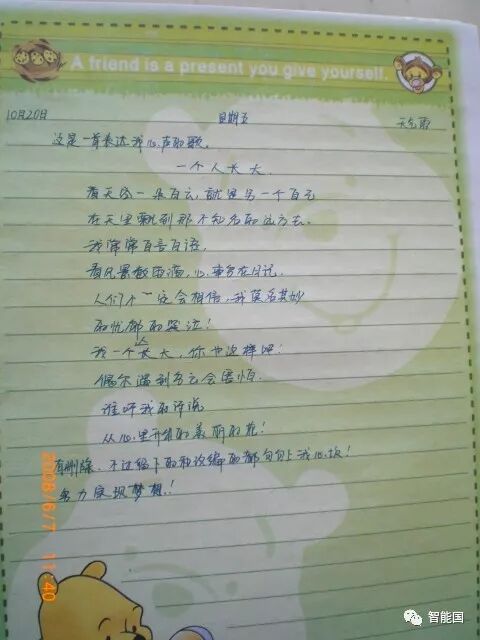 A friend is a present you give yourself.
10月20日 星期五 天气:雨
这是一首表达我心声的歌。
一个人长大
看天空一朵白云,就是另一个白云
在天里飘到那不知名的远方去。
我常常自言自语,
看风景散步,心事写在日记。
人们不一定会相信,我莫名其妙
的忧郁的哭泣!
我一个人长大,你也这样吧!
偶尔遇到乌云会害怕。
谁听我的诉说
从心里开朵的美丽的花!
有删除、不过留下的和改编的都句句上我心坎!
努力实现梦想!
2008/6/7 11:40
智能国